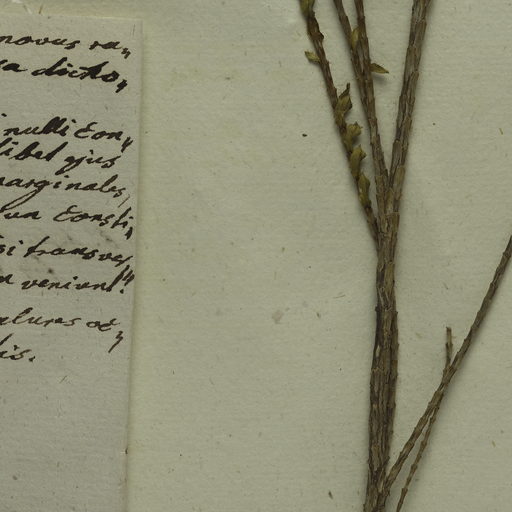 novus ra„
sa dicho„
nulli Con„
libet ejus
marginales,
un Consti„
si transver
m veniunt."
plures oc„
lis.